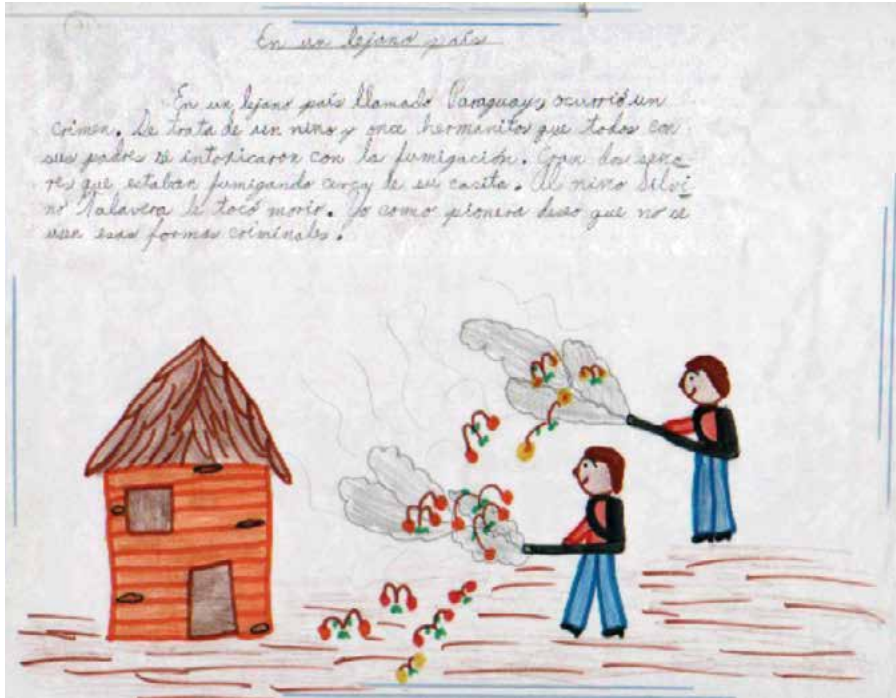 En un lejano país
En un lejano país llamado Paraguay, ocurrió un
crimen. Se trata de un nino y once hermanitos que todos con
sus padres se intoxicaron con la fumigación. Eran dos seno-
res que estaban fumigando cerca de su casita. Al nino Silvi
no Talavera le tocó morir. Yo como pionera deseo que no se
usen esas formas criminales.